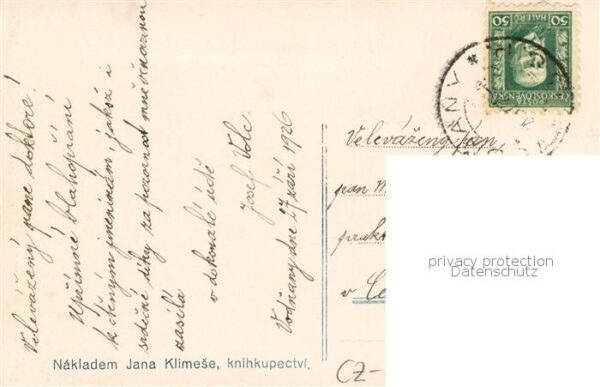 Velevážený pane doktore!
Upřímné blahopřání
k ctěným jmeninám, jakož i
srdečné díky za pozornost mně věnovanou
zasílá
v dokonalé úctě
Josef Volc.
Vodňany dne 27 září 1926
Velevážený pan
pan M
prakt
v Če
50 POŠTA 50
HALÉŘŮ
ČESKOSLOVENSKÁ
privacy protection
Datenschutz
Nákladem Jana Klimeše, knihkupectví.
CZ-